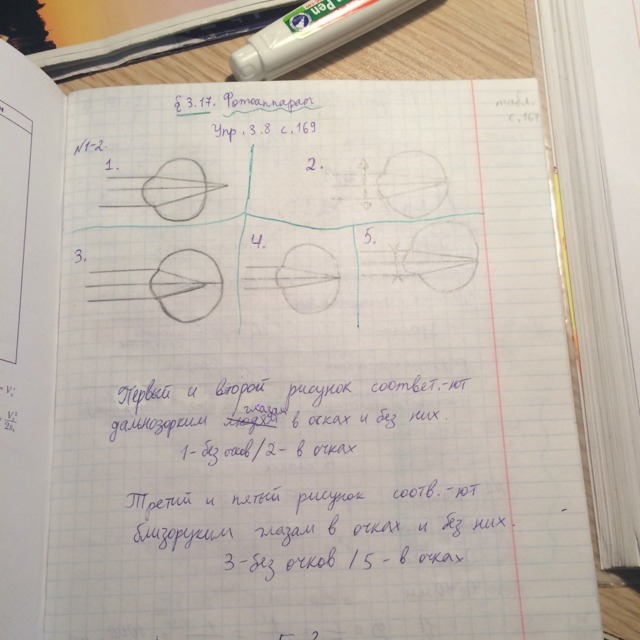 Pen
§ 3.17. Фотоаппараты
Упр. 3.8 с.169
с.169
N1-2.
1.
2.
3.
4.
5.
Первый и второй рисунок соответ.-ют
глазам
дальнозорким в очках и без них.
1- без очков/2- в очках
Третий и пятый рисунок соотв.-ют
близоруким глазам в очках и без них.
3-без очков /5- в очках